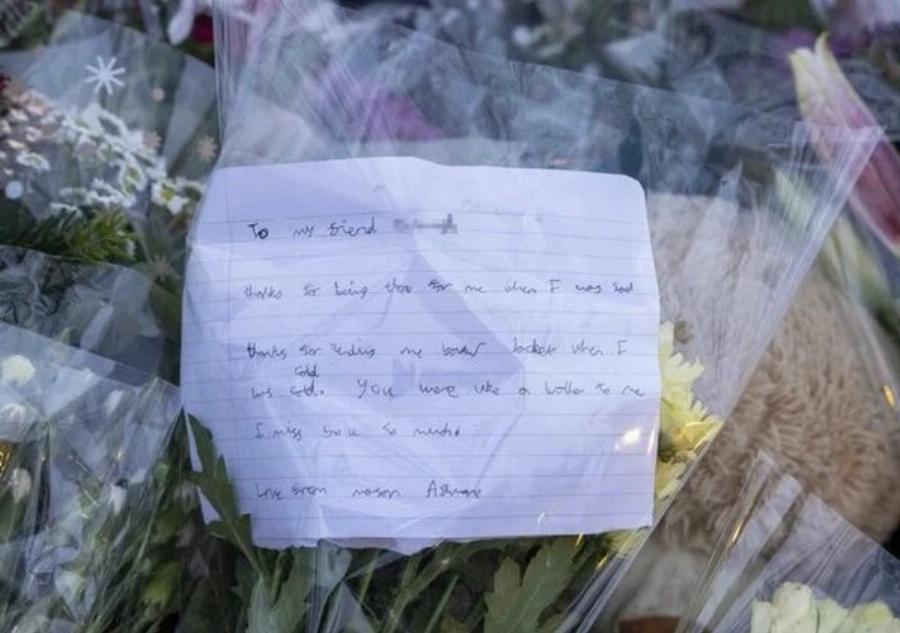 To my friend
thanks for being there for me when I was sad
thanks for lending me your jacket when I
cold
was cold. You were like a brother to me
I miss you so much.
Love from mason